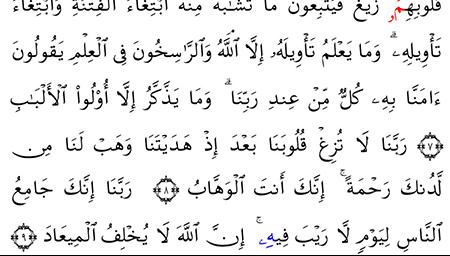 قُلُوبِهِمُۥ زَيْغٌ فَيَتَّبِعُونَ مَا تَشَٰبَهَ مِنْهُ ٱبْتِغَآءَ ٱلْفِتْنَةِ وَٱبْتِغَآءَ
تَأْوِيلِهِۦ ۗ وَمَا يَعْلَمُ تَأْوِيلَهُۥ إِلَّا ٱللَّهُ وَٱلرَّٰسِخُونَ فِى ٱلْعِلْمِ يَقُولُونَ
ءَامَنَّا بِهِۦ كُلٌّ مِّنْ عِندِ رَبِّنَا ۗ وَمَا يَذَّكَّرُ إِلَّآ أُو۟لُوا۟ ٱلْأَلْبَٰبِ
﴿٧﴾ رَبَّنَا لَا تُزِغْ قُلُوبَنَا بَعْدَ إِذْ هَدَيْتَنَا وَهَبْ لَنَا مِن
لَّدُنكَ رَحْمَةً ۚ إِنَّكَ أَنتَ ٱلْوَهَّابُ ﴿٨﴾ رَبَّنَآ إِنَّكَ جَامِعُ
ٱلنَّاسِ لِيَوْمٍ لَّا رَيْبَ فِيهِۦ ۚ إِنَّ ٱللَّهَ لَا يُخْلِفُ ٱلْمِيعَادَ ﴿٩﴾